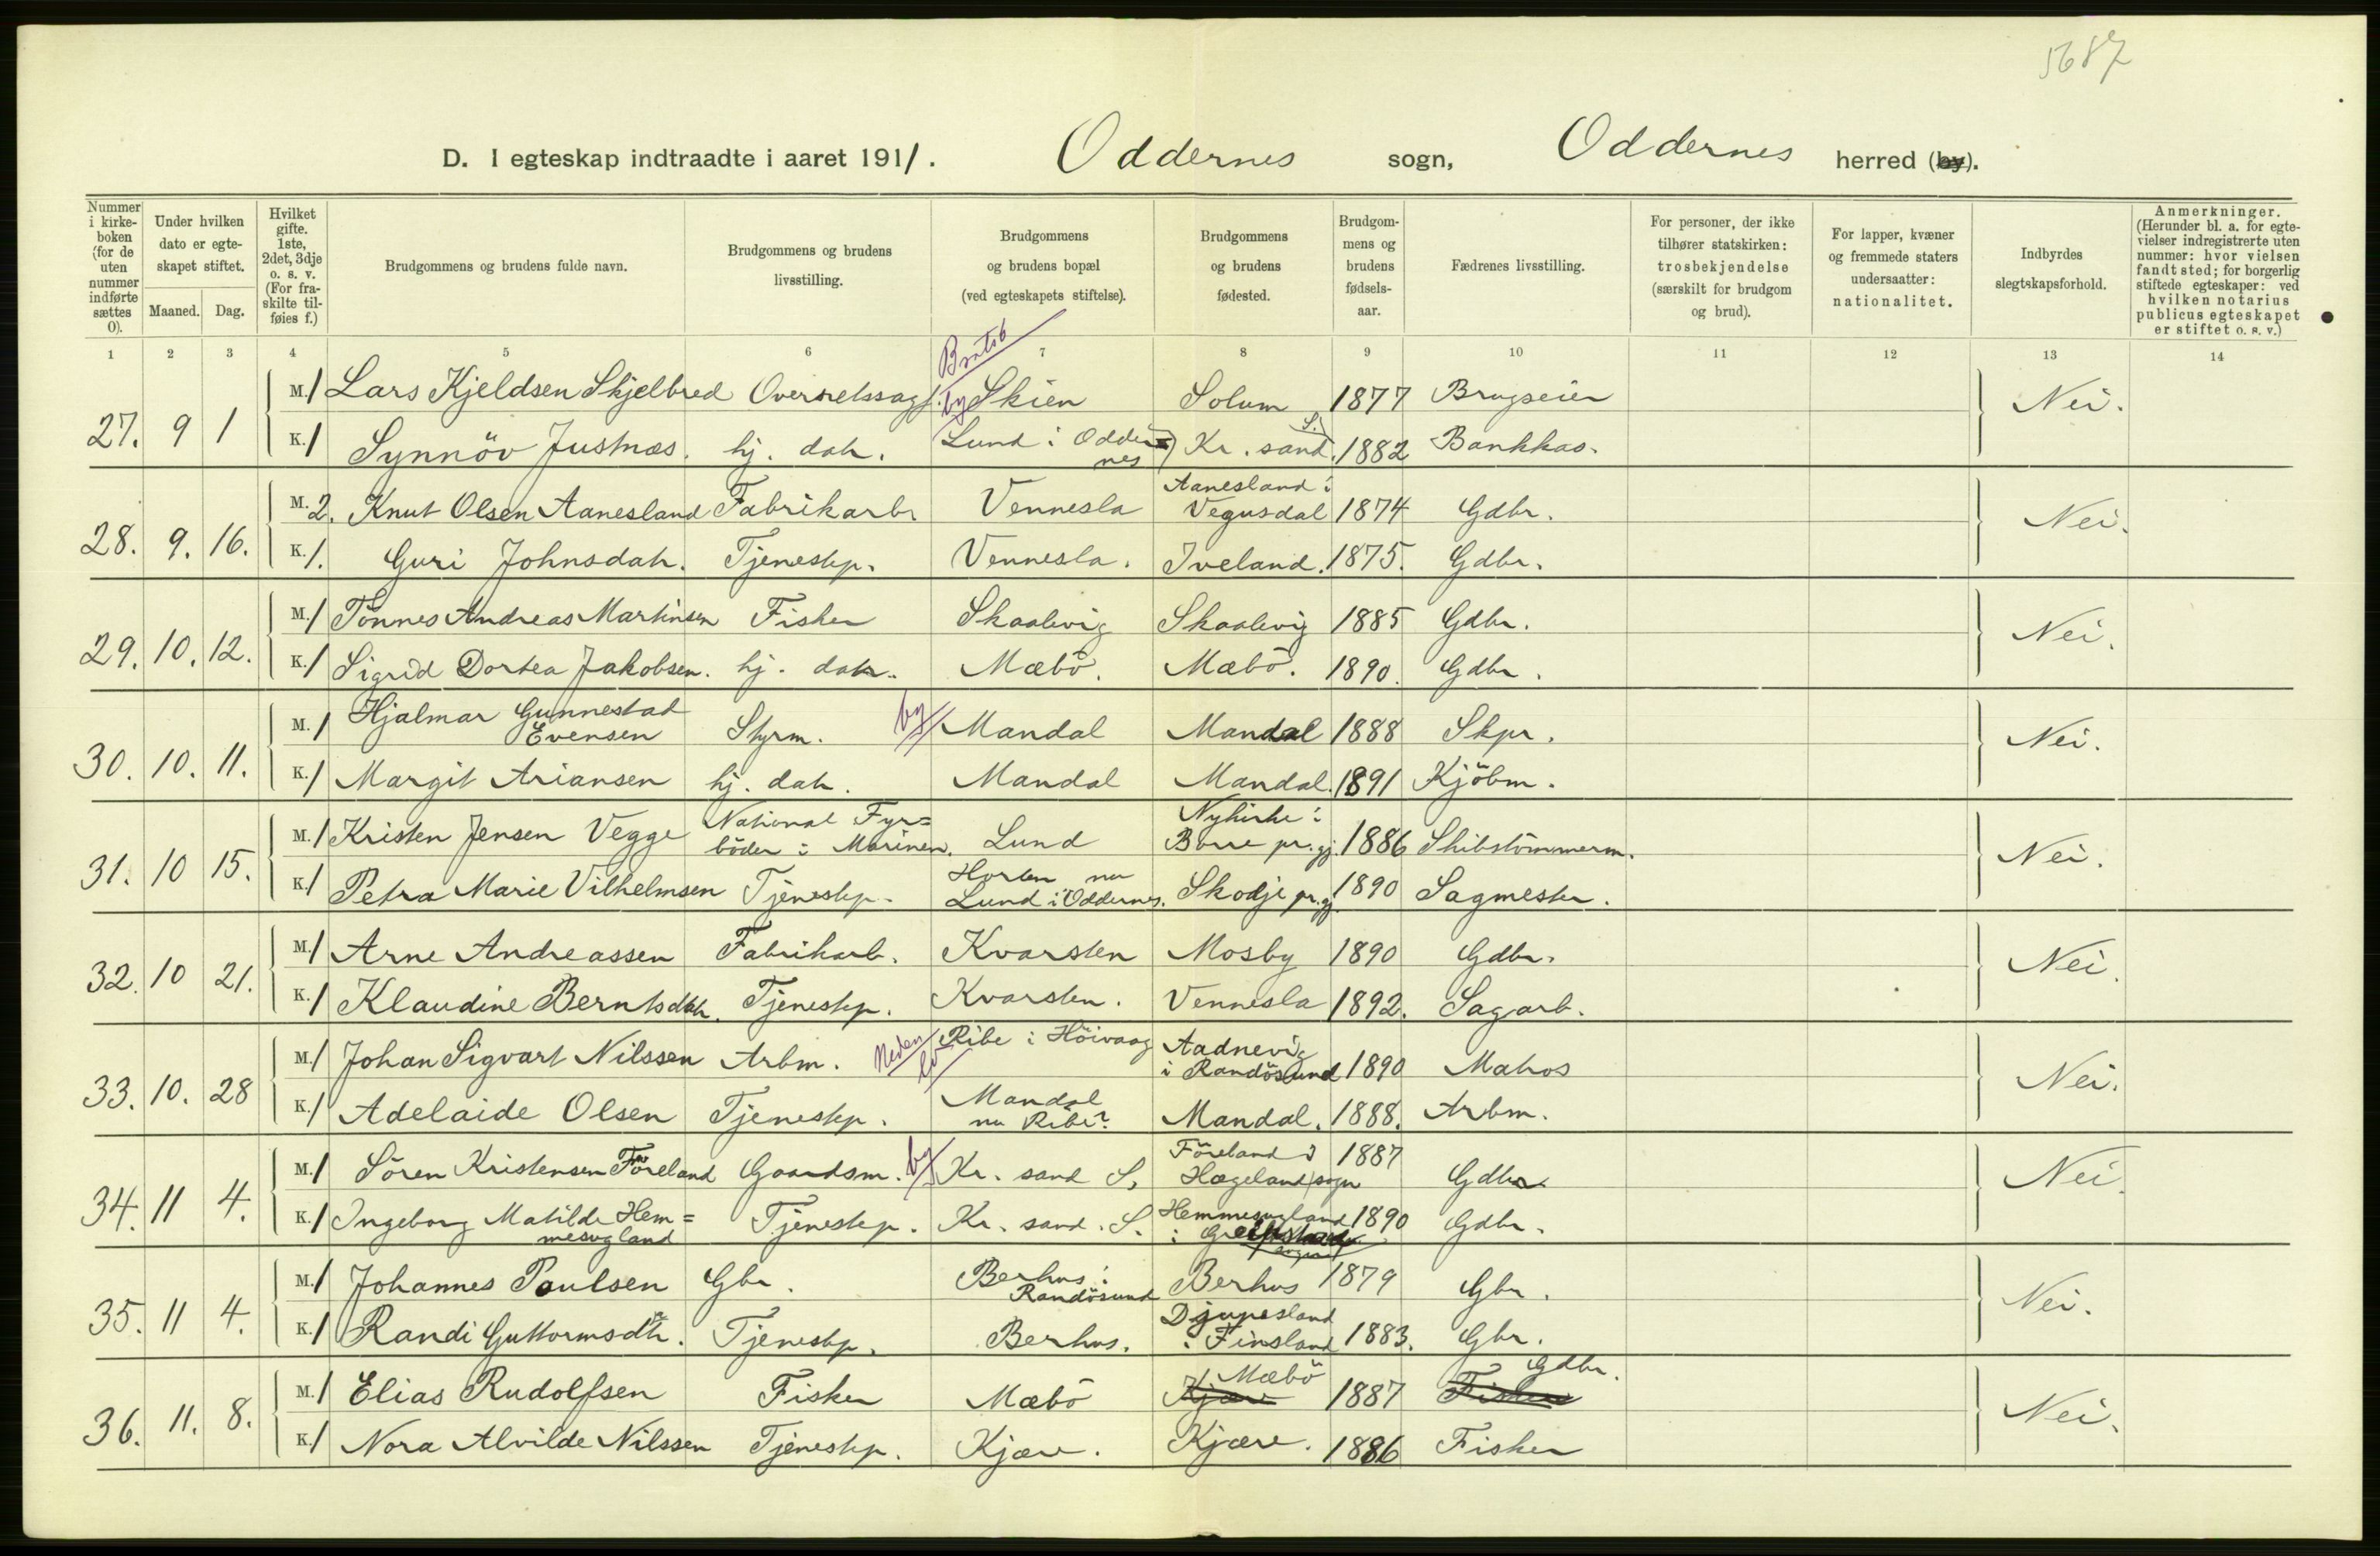 5687
D. I egteskap indtraadte i aaret 1911. Oddernes sogn, Oddernes herred (by).
Nummer i kirkeboken (for de uten nummer indførte sættes 0).
Under hvilken dato er egteskapet stiftet.
Maaned. Dag.
Hvilket gifte. 1ste, 2det, 3dje o. s. v. (For fraskilte tilføies f.)
Brudgommens og brudens fulde navn.
Brudgommens og brudens livsstilling.
Brudgommens og brudens bopæl (ved egteskapets stiftelse).
Brudgommens og brudens fødested.
Brudgommens og brudens fødselsaar.
Fædrenes livsstilling.
For personer, der ikke tilhører statskirken: trosbekjendelse (særskilt for brudgom og brud).
For lapper, kvæner og fremmede staters undersaatter: nationalitet.
Indbyrdes slegtskapsforhold.
Anmerkninger. (Herunder bl. a. for egtevielser indregistrerte uten nummer: hvor vielsen fandt sted; for borgerlig stiftede egteskaper: ved hvilken notarius publicus egteskapet er stiftet o. s. v.)
1 2 3 4 5 6 7 8 9 10 11 12 13 14
Bratsb
27. 9 1 M. 1 Lars Kjeldsen Skjelbred Overretssagf. by Skien Solum 1877 Brugseier Nei.
K. 1 Synnöv Justnæs. hj. datr. Lund i Oddernes Kr. sand. S. 1882 Bankkas.
28. 9. 16. M. 2. Knut Olsen Aanesland Fabrikarb. Vennesla Aanesland i Vegusdal 1874 Gdbr. Nei.
K. 1. Guri Johnsdatr. Tjenestep. Vennesla. Iveland. 1875. Gdbr.
29. 10. 12. M. 1 Tönnes Andreas Martinsen Fisker Skaalevig Skaalevig 1885 Gdbr. Nei.
K. 1 Sigrid Dortea Jakobsen. hj. datr. Mæbö. Mæbö. 1890. Gdbr.
30. 10. 11. M. 1 Hjalmar Gunnestad Evensen Styrm. by Mandal Mandal 1888 Skpr. Nei.
K. 1 Margit Ariansen hj. datr. Mandal Mandal. 1891 Kjöbm.
31. 10 15. M. 1 Kristen Jensen Vegge National Fyr= böder i Marinen. Lund Nykirke i Borre pr.gj. 1886 Skibstömmerm. Nei.
K. 1 Petra Marie Vilhelmsen Tjenestep. Horten nu Lund i Oddernes. Skodje pr.gj. 1890 Sagmester.
32. 10 21. M. 1 Arne Andreassen Fabrikarb. Kvarsten Mosby 1890 Gdbr. Nei.
K. 1 Klaudine Berntsdatr. Tjenestep. Kvarsten. Vennesla 1892. Sagarb.
33. 10. 28 M. 1 Johan Sigvart Nilssen Arbm. Neden Ribe i Höivaag Aadnevig i Randösund 1890 Matros Nei.
K. 1 Adelaide Olsen Tjenestep. Mandal nu Ribe? Mandal. 1888. Arbm.
34. 11 4. M. 1 Sören Kristensen Föreland Gaardsm. by Kr. sand S. Föreland i Hægeland sogn 1887 Gdbr. Nei.
K. 1 Ingeborg Matilde Hem= mesogland Tjenestep. Kr. sand. S. Hemmesogland i Greipstad sogn 1890 Gdbr.
35. 11 4. M. 1 Johannes Paulsen Gbr. Berhus i Randösund Berhus 1879 Gbr. Nei.
K. 1 Randi Guttormsdtr. Tjenestep. Berhus. Djupesland i Finsland 1883. Gbr.
36. 11. 8. M. 1 Elias Rudolfsen Fisker Mæbö Kjære Mæbö 1887 Fisker Gdbr. Nei.
K. 1 Nora Alvilde Nilssen Tjenestep. Kjære. Kjære. 1886 Fisker